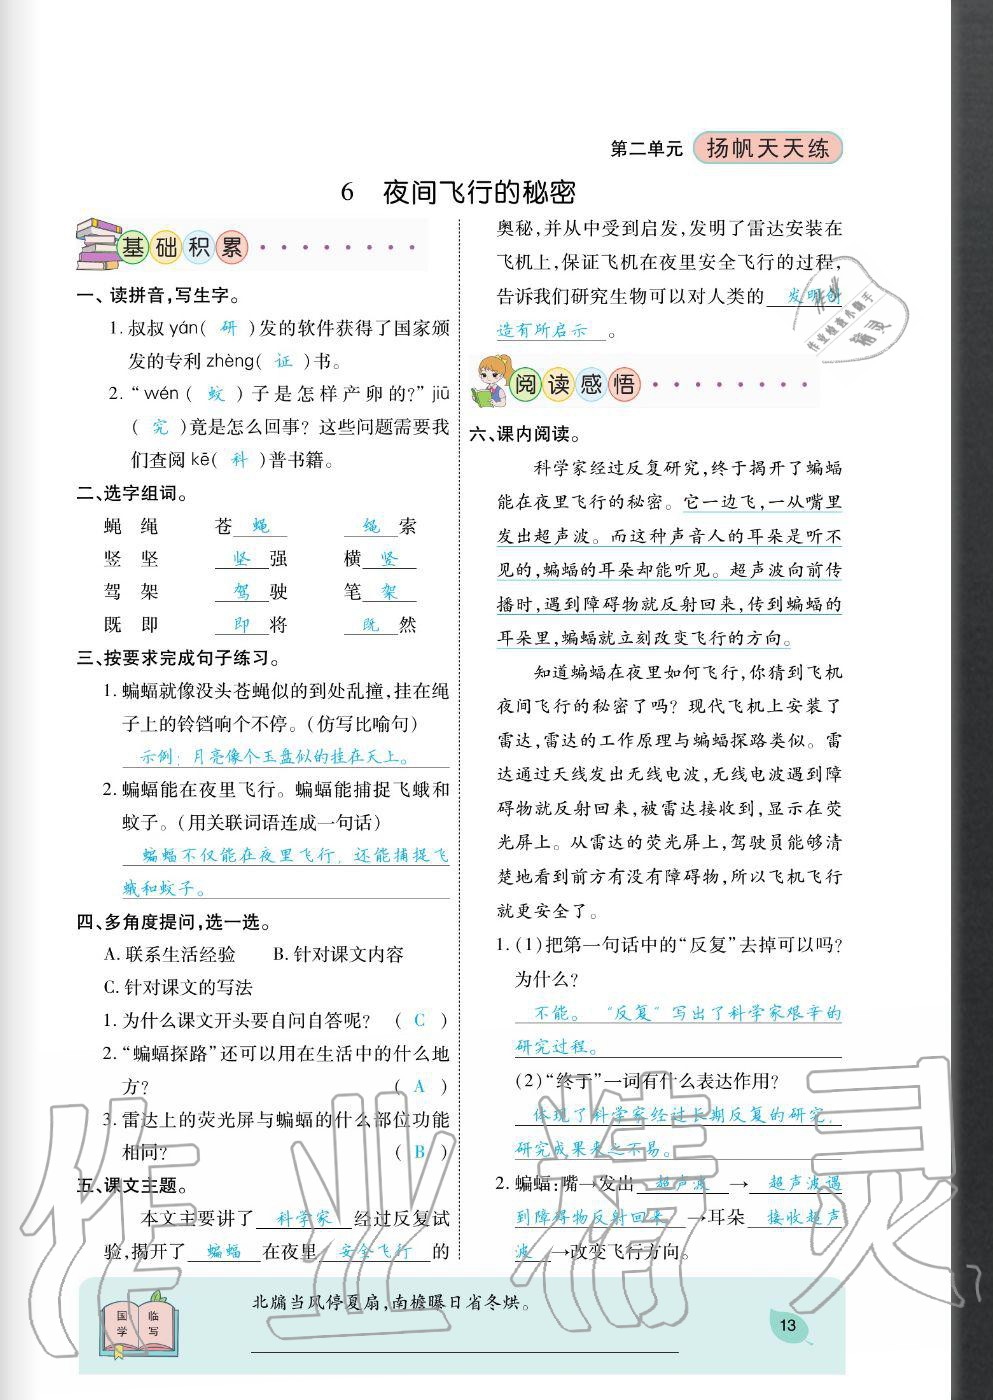 第二单元 扬帆天天练
6 夜间飞行的秘密
基础积累
一、读拼音,写生字。
1. 叔叔 yán( 研 )发的软件获得了国家颁
发的专利 zhèng( 证 )书。
2. “wén( 蚊 )子是怎样产卵的?”jiū
( 究 )竟是怎么回事? 这些问题需要我
们查阅 kē( 科 )普书籍。
二、选字组词。
蝇 绳 苍 蝇 绳 索
竖 坚 坚 强 横 竖
驾 架 驾 驶 笔 架
既 即 即 将 既 然
三、按要求完成句子练习。
1. 蝙蝠就像没头苍蝇似的到处乱撞,挂在绳
子上的铃铛响个不停。(仿写比喻句)
示例:月亮像个玉盘似的挂在天上。
2. 蝙蝠能在夜里飞行。蝙蝠能捕捉飞蛾和
蚊子。(用关联词语连成一句话)
蝙蝠不仅能在夜里飞行,还能捕捉飞
蛾和蚊子。
四、多角度提问,选一选。
A. 联系生活经验 B. 针对课文内容
C. 针对课文的写法
1. 为什么课文开头要自问自答呢? ( C )
2. “蝙蝠探路”还可以用在生活中的什么地
方? ( A )
3. 雷达上的荧光屏与蝙蝠的什么部位功能
相同? ( B )
五、课文主题。
本文主要讲了 科学家 经过反复试
验,揭开了 蝙蝠 在夜里 安全飞行 的
奥秘,并从中受到启发,发明了雷达安装在
飞机上,保证飞机在夜里安全飞行的过程,
告诉我们研究生物可以对人类的 发明创
造有所启示 。
阅读感悟
六、课内阅读。
科学家经过反复研究,终于揭开了蝙蝠
能在夜里飞行的秘密。它一边飞,一从嘴里
发出超声波。而这种声音人的耳朵是听不
见的,蝙蝠的耳朵却能听见。超声波向前传
播时,遇到障碍物就反射回来,传到蝙蝠的
耳朵里,蝙蝠就立刻改变飞行的方向。
知道蝙蝠在夜里如何飞行,你猜到飞机
夜间飞行的秘密了吗? 现代飞机上安装了
雷达,雷达的工作原理与蝙蝠探路类似。雷
达通过天线发出无线电波,无线电波遇到障
碍物就反射回来,被雷达接收到,显示在荧
光屏上。从雷达的荧光屏上,驾驶员能够清
楚地看到前方有没有障碍物,所以飞机飞行
就更安全了。
1. (1)把第一句话中的“反复”去掉可以吗?
为什么?
不能。 “反复”写出了科学家艰辛的
研究过程。
(2)“终于”一词有什么表达作用?
体现了科学家经过长期反复的研究,
研究成果来之不易。
2. 蝙蝠:嘴→发出 超声波 → 超声波遇
到障碍物反射回来 →耳朵 接收超声
波 →改变飞行方向。
国学临写
北牖当风停夏扇,南檐曝日省冬烘。
13
作业精灵
作业检查小助手
精灵